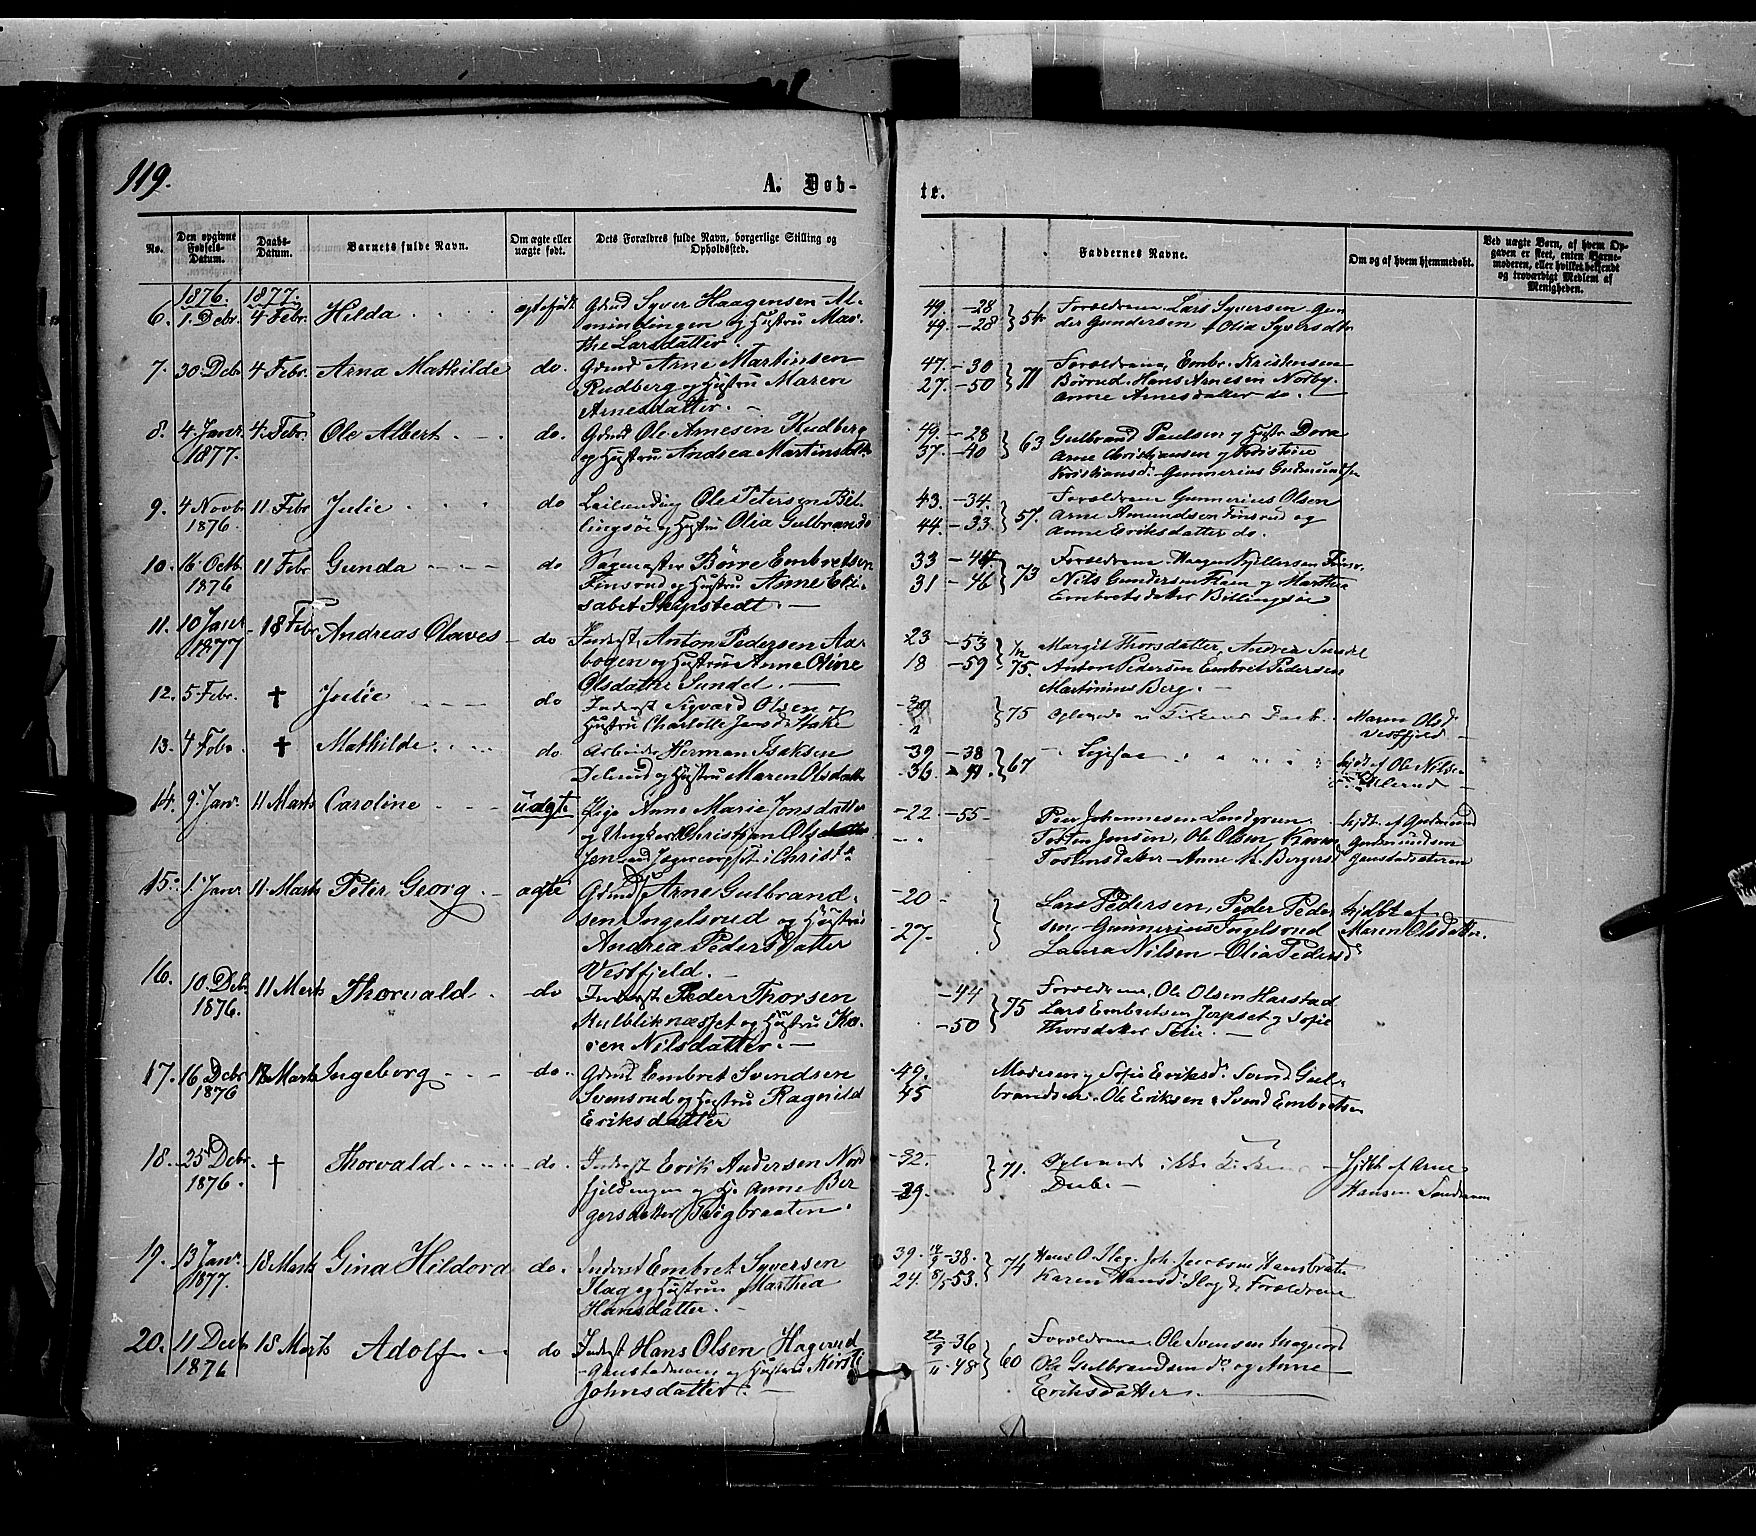 119.
A. Døb-
te.
No.
Den opgivne Fødsels-Datum.
Daabs-Datum.
Barnets fulde Navn.
Om ægte eller uægte født.
Dets Forældres fulde Navn, borgerlige Stilling og Opholdssted.
Faddernes Navne.
Om og af hvem hjemmedøbt.
Ved uægte Børn, af hvem Opgaven er skeet, enten Barnemoderen, eller hvilket bekjendt og troværdigt Medlem af Menigheden.
1876. 1877.
6. 1. Debr. 4 Febr. Hilda ægtefødt Gdmd Syver Haagensen Al-
mindingen og Hustru Mar-
the Larsdatter.
49. -28
49. -28 } 54 Forældrene Lars Syversen
Gundersen Olia Syversdtr
7. 30 Debr 4 Febr. Arna Mathilde do. Gdmd Arne Martinsen
Rudberg og Hustru Maren
Arnesdatter. -
47. -30
27. -50 } 71 Forældrene, Embr. Kristensen
Børrud. Hans Arnesen Norby.
Anne Arnesdatter do.
8. 4 Janr 1877. 4. Febr. Ole Albert do. Gdmd Ole Arnesen Rudberg
og Hustru Andrea Martinsdtr
49. -28
37. -40 } 63 Gulbrand Paulsen og Hustr Dora
Arne Christiansen og Kristine
Kristiansd.
9. 4 Novbr 1876. 11 Febr Julie do Leilending Ole Petersen Bil-
lingsøe og Hustru Olia Gulbrandsd
43. -34.
44. -33. } 57. Forældrene Gunnerius Olsen
Arne Amundsen Finsrud og
Anne Eriksdatter do.
10. 16 Octb. 1876 11 Febr Gunda do Sagmester Børre Embretsen
Finsrud og Hustru Anne Eli-
sabet Skipstedt. -
33 -44
31 -46 } 73
Nils Gundersen og Marthe
Embretsdatter Billingsøe
11. 10 Janr 1877 18 Febr Andreas Olaves do Inderst, Anton Pedersen Aa-
bogen og Hustru Anne Oline
Olsdatter Sundet. -
23 -53
18 -59 } 75. Margit Thorsdatter, Andrea Sundet
Anton Pedersen Embret Pedersen
Martinius Berg. -
12. 5 Febr. † Julie do Inderst Sigvard Olsen og
Hustru Charlotte
} 75 Maren Olsd
Vestfjeld -
13. 4 Febr. † Mathilde. do Arbeider Herman Isaksen
og Hustru Maren Olsdatter
-39 -38
-36 } 67 Ligesaa hjdt af Ole Nilsen
14. 9 Janr. 11 Marts Caroline uægte Pige Anne Marie Jonsdatter
og Ungkarl Christian Olsen
-22 -55 Peer Johannesen Landgreen
Tosten Jensen, Ole Olsen, Karen
Tostensdatter - Anne K. Bergersd
hjdt. af Gudmund
Gudmundsen
15. 1. Janr 11 Marts Peter Georg ægte Gdmd Arne Gulbrand-
sen Ingelsrud og Hustru
Andrea Pedersdatter
Vestfjeld. -
-20
-27 } Lars Pedersen, Peder Peder
sen - Gunnerius Ingelsrud
Laura Nilsen - Olia Pedersd
hjdbt af
Maren Olsdatter.
16. 10 Debr 1876. 11 Marts Thorvald do Inderst Peder Thorsen
Kulbliknæsset og Hustru Ka-
ren Nilsdatter. -
-44
-50 } 75 Forældrene, Ole Olsen Harstad
Lars Embretsen og Sofie
Thorsdatter
17. 16 Debr 1876 18 Marts Ingeborg do. Gdmd Embret Svendsen
Svensrud og Hustru Ragnild
Eriksdatter
-49.
45 Moderen og Sofie Eriksd. Svend Gul-
brandsen. Ole Eriksen. Svend Embretsen
18. 25 Debr. 1876. † Thorvald do. Inderst Erik Andersen Nord
fjeldengen og H. Anne Ber
gersdatter
-32.
-29. } 71. ikke
Daab. -
hjdbt af Arne
Hansen
19. 13 Janr 1877. 18 Marts Gina Hildora do. Inderst Embret Syversen
Ilag og Hustru Marthea
Hansdatter. -
39. 14/9 -38.
24. 8/5 -53. } 74 Hans O. Ilag. Joh. Jacobsen
Karen Hansd. Ilag &amp; Forældrene
20. 11 Decbr 1876 18 Marts Adolf do Inderst Hans Olsen Hagerud
og Hustru Kirsti
Johnsdatter. -
22/9 -36
-48 } 60 Forældrene Ole Svensen
Ole Gulbrandsen do og Anne
Eriksdatter.